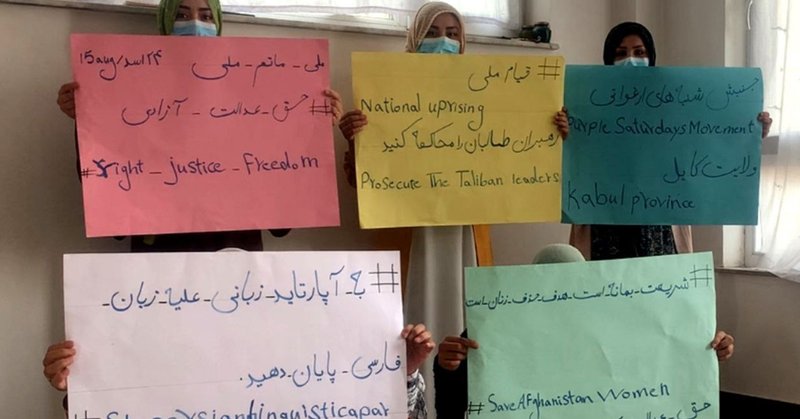 15aug/۲۴اسد
ملی - ماتم - ملی
#حق - عدالت - آزادی
#right - justice - Freedom
# قیام ملی
National uprising
رهبران طالبان را محاکمه کنید
Prosecute The Taliban leaders
جنبش شنبه‌های ارغوانی
Purple Saturdays Movement
ولایت کابل
Kabul province
# به - آپارتاید - زبانی - علیه - زبان -
فارسی - پایان - دهید.
# شریعت - بهانه - است - هدف - حذف - زنان - است
# Save Afghanistan Women